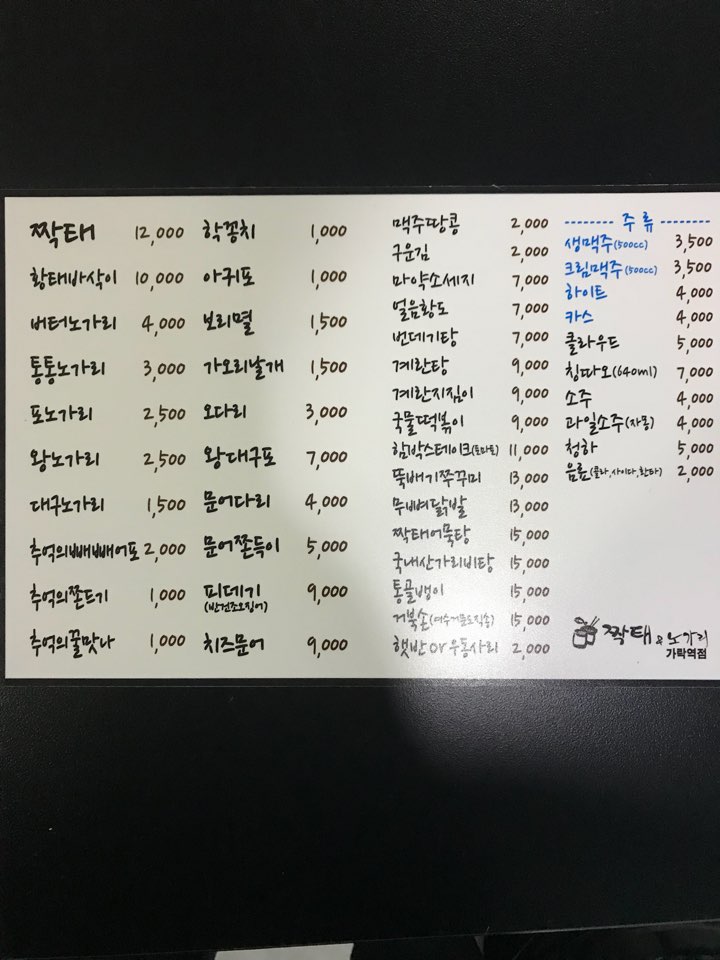 짝태 12,000
황태바삭이 10,000
버터노가리 4,000
통통노가리 3,000
포노가리 2,500
왕노가리 2,500
대구노가리 1,500
추억의빼빼어포 2,000
추억의쫀드기 1,000
추억의꿀맛나 1,000
학꽁치 1,000
아귀포 1,000
보리멸 1,500
가오리날개 1,500
오다리 3,000
왕대구포 7,000
문어다리 4,000
문어쫀득이 5,000
피데기 9,000
(반건조오징어)
치즈문어 9,000
맥주땅콩 2,000
구운김 2,000
마약소세지 7,000
얼음황도 7,000
번데기탕 7,000
계란탕 9,000
계란지짐이 9,000
국물떡볶이 9,000
함박스테이크(토마토) 11,000
뚝배기쭈꾸미 13,000
무뼈닭발 13,000
짝태어묵탕 15,000
국내산가리비탕 15,000
통골뱅이 15,000
거북손(여수거문도직송) 15,000
햇반or우동사리 2,000
주류
생맥주(500cc) 3,500
크림맥주(500cc) 3,500
하이트 4,000
카스 4,000
클라우드 5,000
칭따오(640ml) 7,000
소주 4,000
과일소주(자몽) 4,000
청하 5,000
음료(콜라,사이다,환타) 2,000
짝태&노가리
가락역점